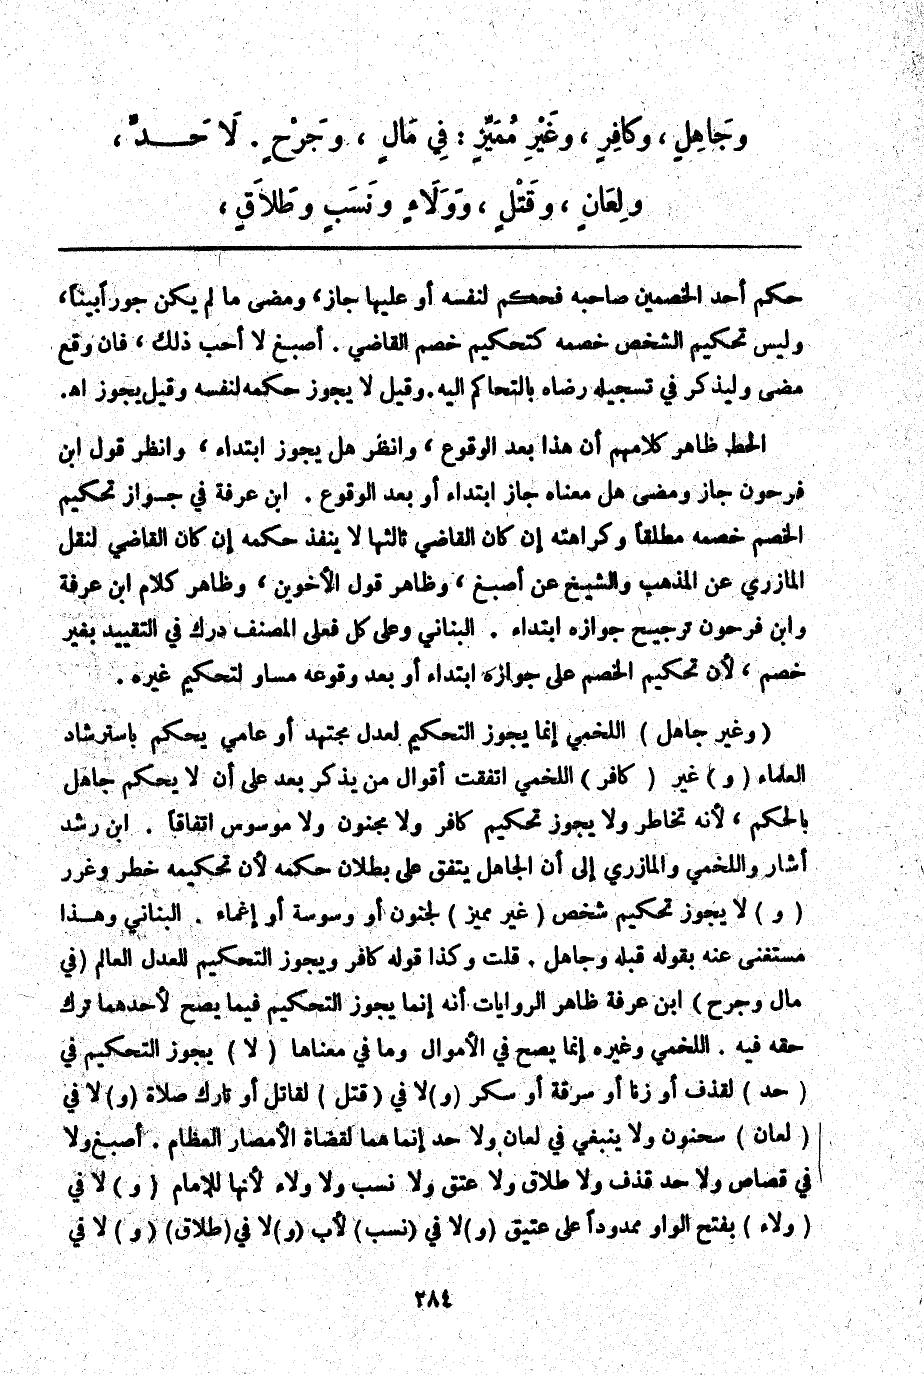 وَجَاهِلٍ ، وكافِرٍ ، وغَيْرِ مُمَيِّزٍ : فِي مَالٍ ، وجَرْحٍ . لَا حَـــدٍّ ،
ولِعَانٍ ، وقَتْلٍ ، وَوَلَاءٍ ونَسَبٍ وطَلاَقٍ ،
حكم أحد الخصمين صاحبه فحكم لنفسه أو عليها جاز ، ومضى ما لم يكن جوراً بيناً ،
وليس تحكيم الشخص خصمه كتحكيم خصم القاضي . أصبغ لا أحب ذلك ، فان وقع
مضى وليذكر في تسجيله رضاه بالتحاكم اليه . وقيل لا يجوز حكمه لنفسه وقيل يجوز اهـ.
الحط ظاهر كلامهم أن هذا بعد الوقوع ، وانظر هل يجوز ابتداء ، وانظر قول ابن
فرحون جاز ومضى هل معناه جاز ابتداء أو بعد الوقوع . ابن عرفة في جــواز تحكيم
الخصم خصمه مطلقاً وكراهته إن كان القاضي ثالثها لا ينفذ حكمه إن كان القاضي لنقل
المازري عن المذهب والشيخ عن أصبغ ، وظاهر قول الأخوين ، وظاهر كلام ابن عرفة
وابن فرحون ترجيح جوازه ابتداء . البناني وعلى كل فعلى المصنف درك في التقييد بغير
خصم ، لأن تحكيم الخصم على جوازه ابتداء أو بعد وقوعه مساو لتحكيم غيره .
( وغير جاهل ) اللخمي إنما يجوز التحكيم لعدل مجتهد أو عامي يحكم باسترشاد
العلماء ( و ) غير ( كافر ) اللخمي اتفقت أقوال من يذكر بعد على أن لا يحكم جاهل
بالحكم ، لأنه تخاطر ولا يجوز تحكيم كافر ولا مجنون ولا موسوس اتفاقاً . ابن رشد
أشار واللخمي والمازري إلى أن الجاهل يتفق على بطلان حكمه لأن تحكيمه خطر وغرر
( و ) لا يجوز تحكيم شخص ( غير مميز ) لجنون أو وسوسة أو إغماء . البناني وهــذا
مستغنى عنه بقوله قبله وجاهل . قلت وكذا قوله كافر ويجوز التحكيم للعدل العالم (في
مال وجرح ) ابن عرفة ظاهر الروايات أنه إنما يجوز التحكيم فيما يصح لأحدهما ترك
حقه فيه . اللخمي وغيره إنما يصح في الأموال وما في معناها ( لا ) يجوز التحكيم في
( حد ) لقذف أو زنا أو سرقة أو سكر (و)لا في ( قتل ) لقاتل أو تارك صلاة (و) لا في
( لعان ) سحنون ولا ينبغي في لعان ولا حد إنما هما لقضاة الأمصار العظام . أصبغ ولا
في قصاص ولا حد قذف ولا طلاق ولا عتق ولا نسب ولا ولاء لأنها للإمام ( و ) لا في
( ولاء ) بفتح الواو ممدوداً على عتيق (و)لا في (نسب) لأب (و)لا في(طلاق) ( و ) لا في
٢٨٤